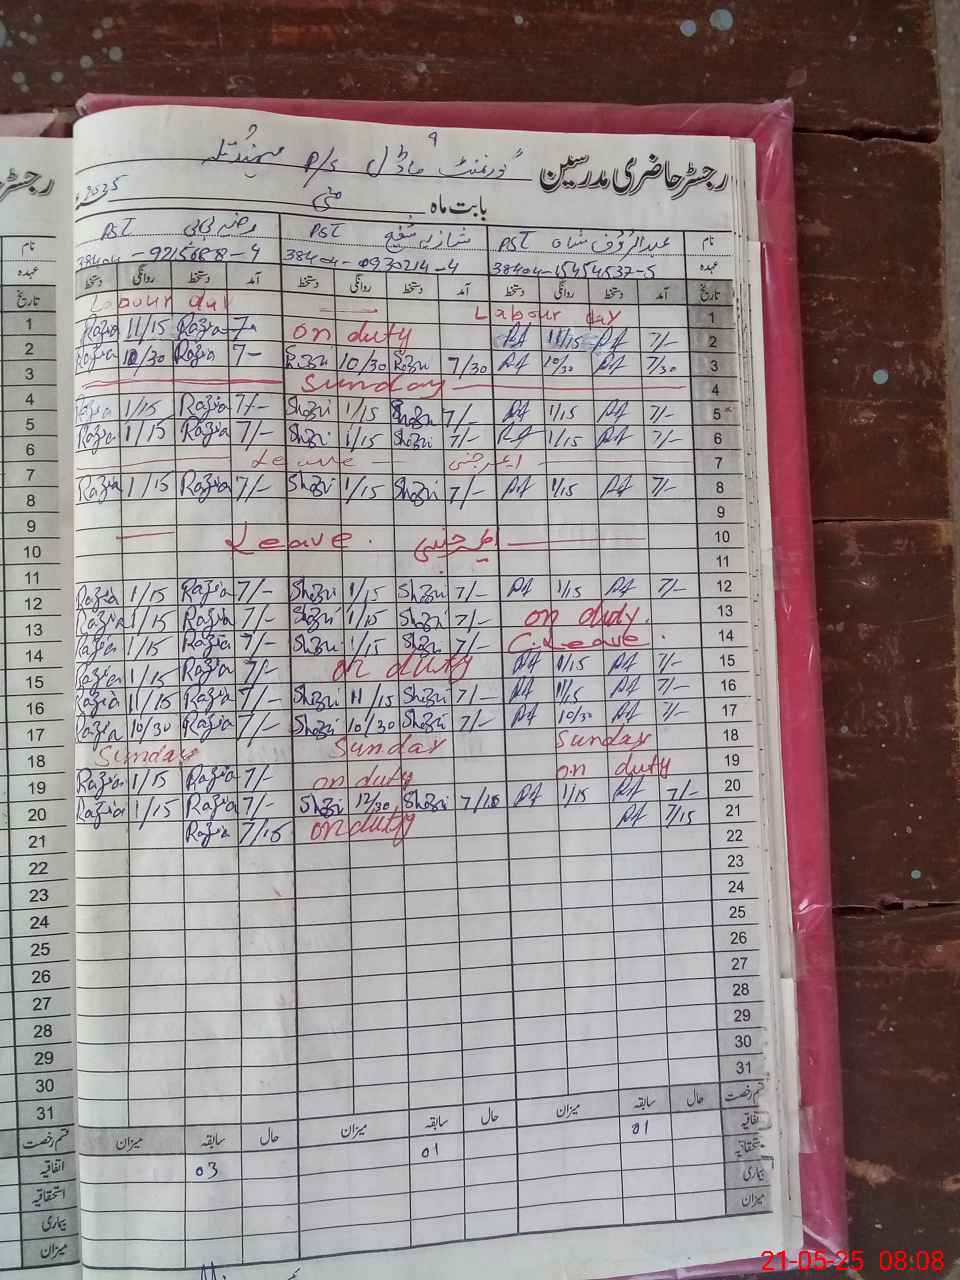 رجسٹر حاضری مدرسین گورنمنٹ ماڈل P/S
بابت ماہ مئی 2025
نام عبدالرؤف شاہ PST شازیہ شفیع PST رضیہ بی بی PST
عہدہ 38404-15454537-5 38404-0930214-4
تاریخ آمد دستخط روانگی دستخط آمد دستخط روانگی دستخط آمد دستخط روانگی دستخط
1 Labour day Labour day
2 7/- 11/15 on duty 7- Razia 11/15 Razia
3 7/30 10/30 7/30 10/30 7- Razia 10/30 Razia
4 Sunday
5 7/- 1/15 7/- Shazi 1/15 Shazi 7/- Razia 1/15 Razia
6 7/- 1/15 7/- Shazi 1/15 Shazi 7/- Razia 1/15 Razia
7 ایمرجنسی Leave
8 7/- 1/15 7/- Shazi 1/15 Shazi 7/- Razia 1/15 Razia
9
10 ایمرجنسی Leave
11
12 7/- 1/15 7/- Shazi 1/15 Shazi 7/- Razia 1/15 Razia
13 on duty 7/- Shazi 1/15 Shazi 7/- Razia 1/15 Razia
14 C.Leave 7/- Shazi 1/15 Shazi 7/- Razia 1/15 Razia
15 7/- 1/15 on duty 7/- Razia 1/15 Razia
16 7/- 11/15 7/- Shazi 11/15 Shazi 7/- Razia 11/15 Razia
17 7/- 10/30 7/- Shazi 10/30 Shazi 7/- Razia 10/30 Razia
18 Sunday Sunday Sunday
19 on duty on duty 7/- Razia 1/15 Razia
20 7/- 1/15 7/15 Shazi 12/30 Shazi 7/- Razia 1/15 Razia
21 7/15 on duty 7/15 Razia
22
23
24
25
26
27
28
29
30
31
قسم رخصت حال سابقہ میزان حال سابقہ میزان حال سابقہ میزان
اتفاقیہ 01 01 03
استحقاقیہ
بیماری
میزان
21-05-25 08:08